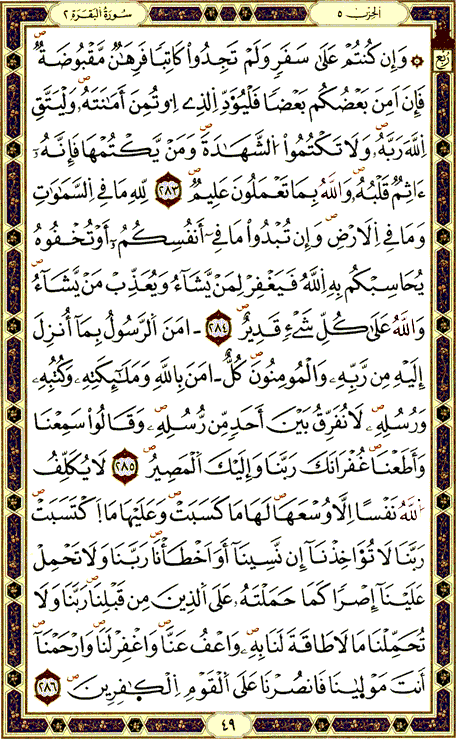 سُورَةُ الْبَقَرَةِ ٢
الحزب ٥
رُبع
۞ وَإِن كُنتُمْ عَلَىٰ سَفَرٖ وَلَمْ تَجِدُواْ كَاتِباٗ فَرِهَٰنٞ مَّقْبُوضَةٞ
فَإِنْ اَمِنَ بَعْضُكُم بَعْضاٗ فَلْيُؤَدِّ اِلذِے اِ۟وتُمِنَ أَمَٰنَتَهُۥ وَلْيَتَّقِ
اِللَّهَ رَبَّهُۥ وَلَا تَكْتُمُواْ اُلشَّهَٰدَةَ وَمَنْ يَّكْتُمْهَا فَإِنَّهُۥ
ءَاثِمٞ قَلْبُهُۥ وَاللَّهُ بِمَا تَعْمَلُونَ عَلِيمٞ ٢٨٣ لِّلهِ مَا فِے اِلسَّمَٰوَٰتِ
وَمَا فِے اِلَارْضِ وَإِن تُبْدُواْ مَا فِےٓ أَنفُسِكُمُۥٓ أَوْ تُخْفُوهُ
يُحَاسِبْكُم بِهِ اِللَّهُ فَيَغْفِرْ لِمَنْ يَّشَآءُ وَيُعَذِّب مَّنْ يَّشَآءُ
وَاللَّهُ عَلَىٰ كُلِّ شَےْءٖ قَدِيرٌ ٢٨٤ اٰمَنَ اَلرَّسُولُ بِمَآ أُنزِلَ
إِلَيْهِ مِن رَّبِّهِۦ وَالْمُومِنُونَ كُلٌّ اٰمَنَ بِاللَّهِ وَمَلَٰٓئِكَتِهِۦ وَكُتُبِهِۦ
وَرُسُلِهِۦ لَا نُفَرِّقُ بَيْنَ أَحَدٖ مِّن رُّسُلِهِۦ وَقَالُواْ سَمِعْنَا
وَأَطَعْنَا غُفْرَانَكَ رَبَّنَا وَإِلَيْكَ اَلْمَصِيرُ ٢٨٥ لَا يُكَلِّفُ
اُللَّهُ نَفْساً اِلَّا وُسْعَهَا لَهَا مَا كَسَبَتْ وَعَلَيْهَا مَا اَكْتَسَبَتْ
رَبَّنَا لَا تُوَاخِذْنَآ إِن نَّسِينَآ أَوَ اَخْطَأْنَا رَبَّنَا وَلَا تَحْمِلْ
عَلَيْنَآ إِصْراٗ كَمَا حَمَلْتَهُۥ عَلَى اَلذِينَ مِن قَبْلِنَا رَبَّنَا وَلَا
تُحَمِّلْنَا مَا لَا طَاقَةَ لَنَا بِهِۦ وَاعْفُ عَنَّا وَاغْفِرْ لَنَا وَارْحَمْنَآ
أَنتَ مَوْلَىٰنَا فَانصُرْنَا عَلَى اَلْقَوْمِ اِلْكَٰفِرِينَ ٢٨٦
٤٩